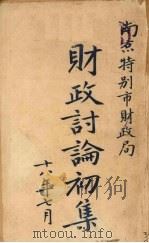 南京特别市財政局
財政討論初集
十八年七月